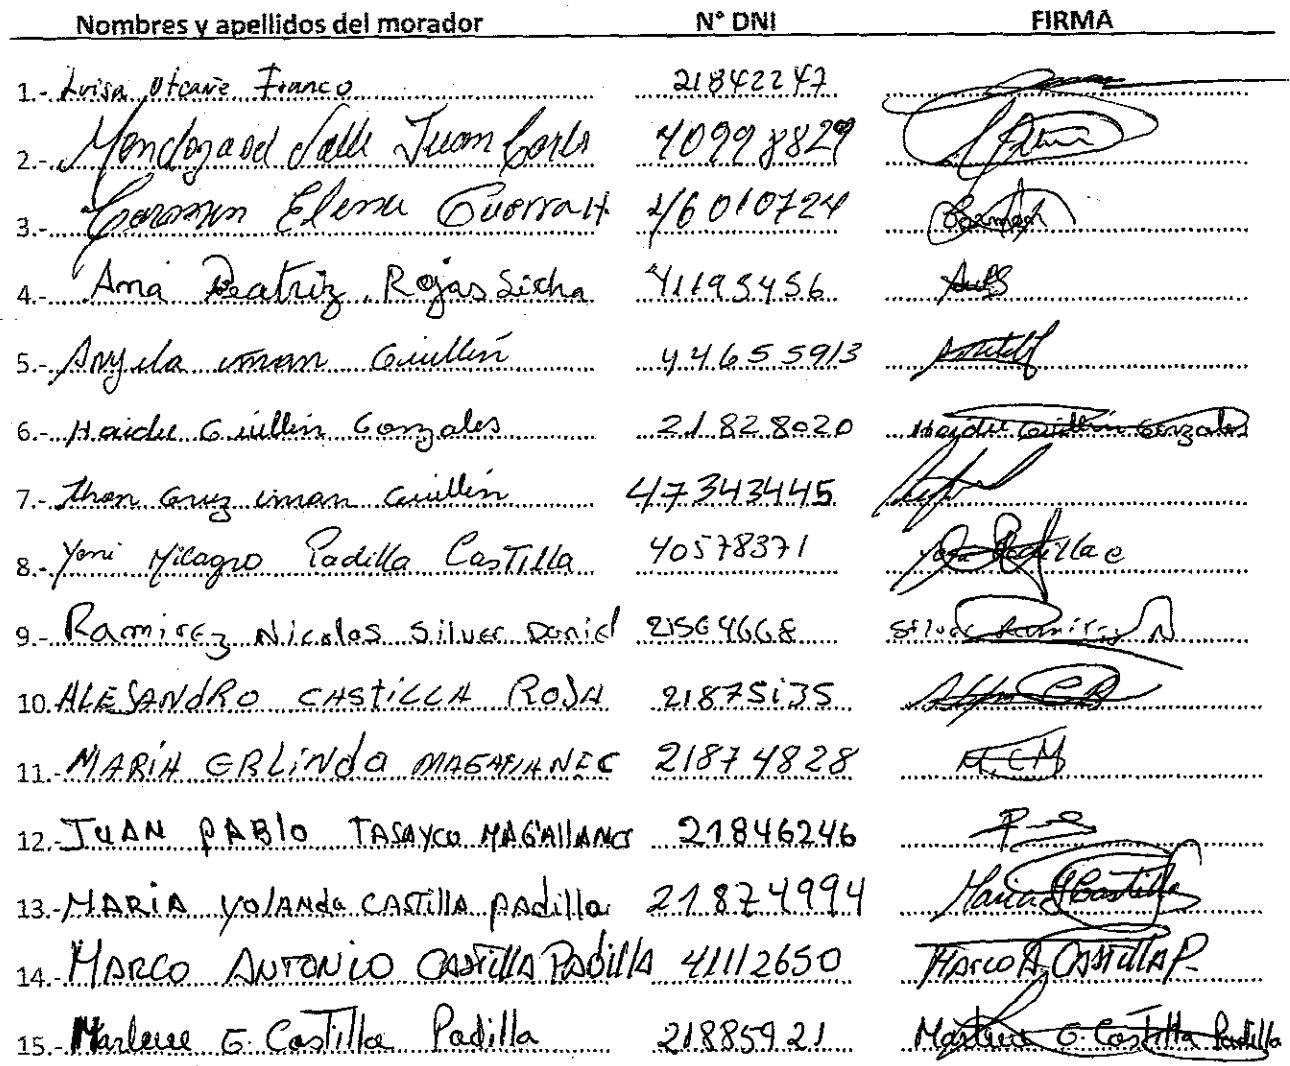 Nombres y apellidos del morador N° DNI FIRMA
1.- Luisa Franco 21842247
2.- Mendoza del Valle Juan Carlo 40998829
3.- Carmen Elena Guerra H 46010724 Carmen
4.- Ana Beatriz Rojas Sicha 41195456
5.- Angela iman Guillén 44655913
6.- Haidee Guillén Gonzales 21828020 Haidee Guillén Gonzales
7.- Jhon Cruz iman Guillén 47343445
8.- Yeni Milagro Padilla Castilla 40578371 Padilla C
9.- Ramirez Nicolas Silver Daniel 21564668 Silver Ramirez N
10. ALESANDRO CASTiLLA ROJA 21875135
11.- MARiA ERLiNda 21874828 M.CM
12.- JUAN PABlo TASAYCO MAGAllANES 21846246
13.- MARiA YolANda CASTillA PAdilla 21874994 Maria Castilla
14.- MARCO ANTONiO CASTillA PADillA 41112650 MArco A. CAStillA P.
15.- Marlene G. Castilla Padilla 21885921 Marlene G. Castilla Padilla